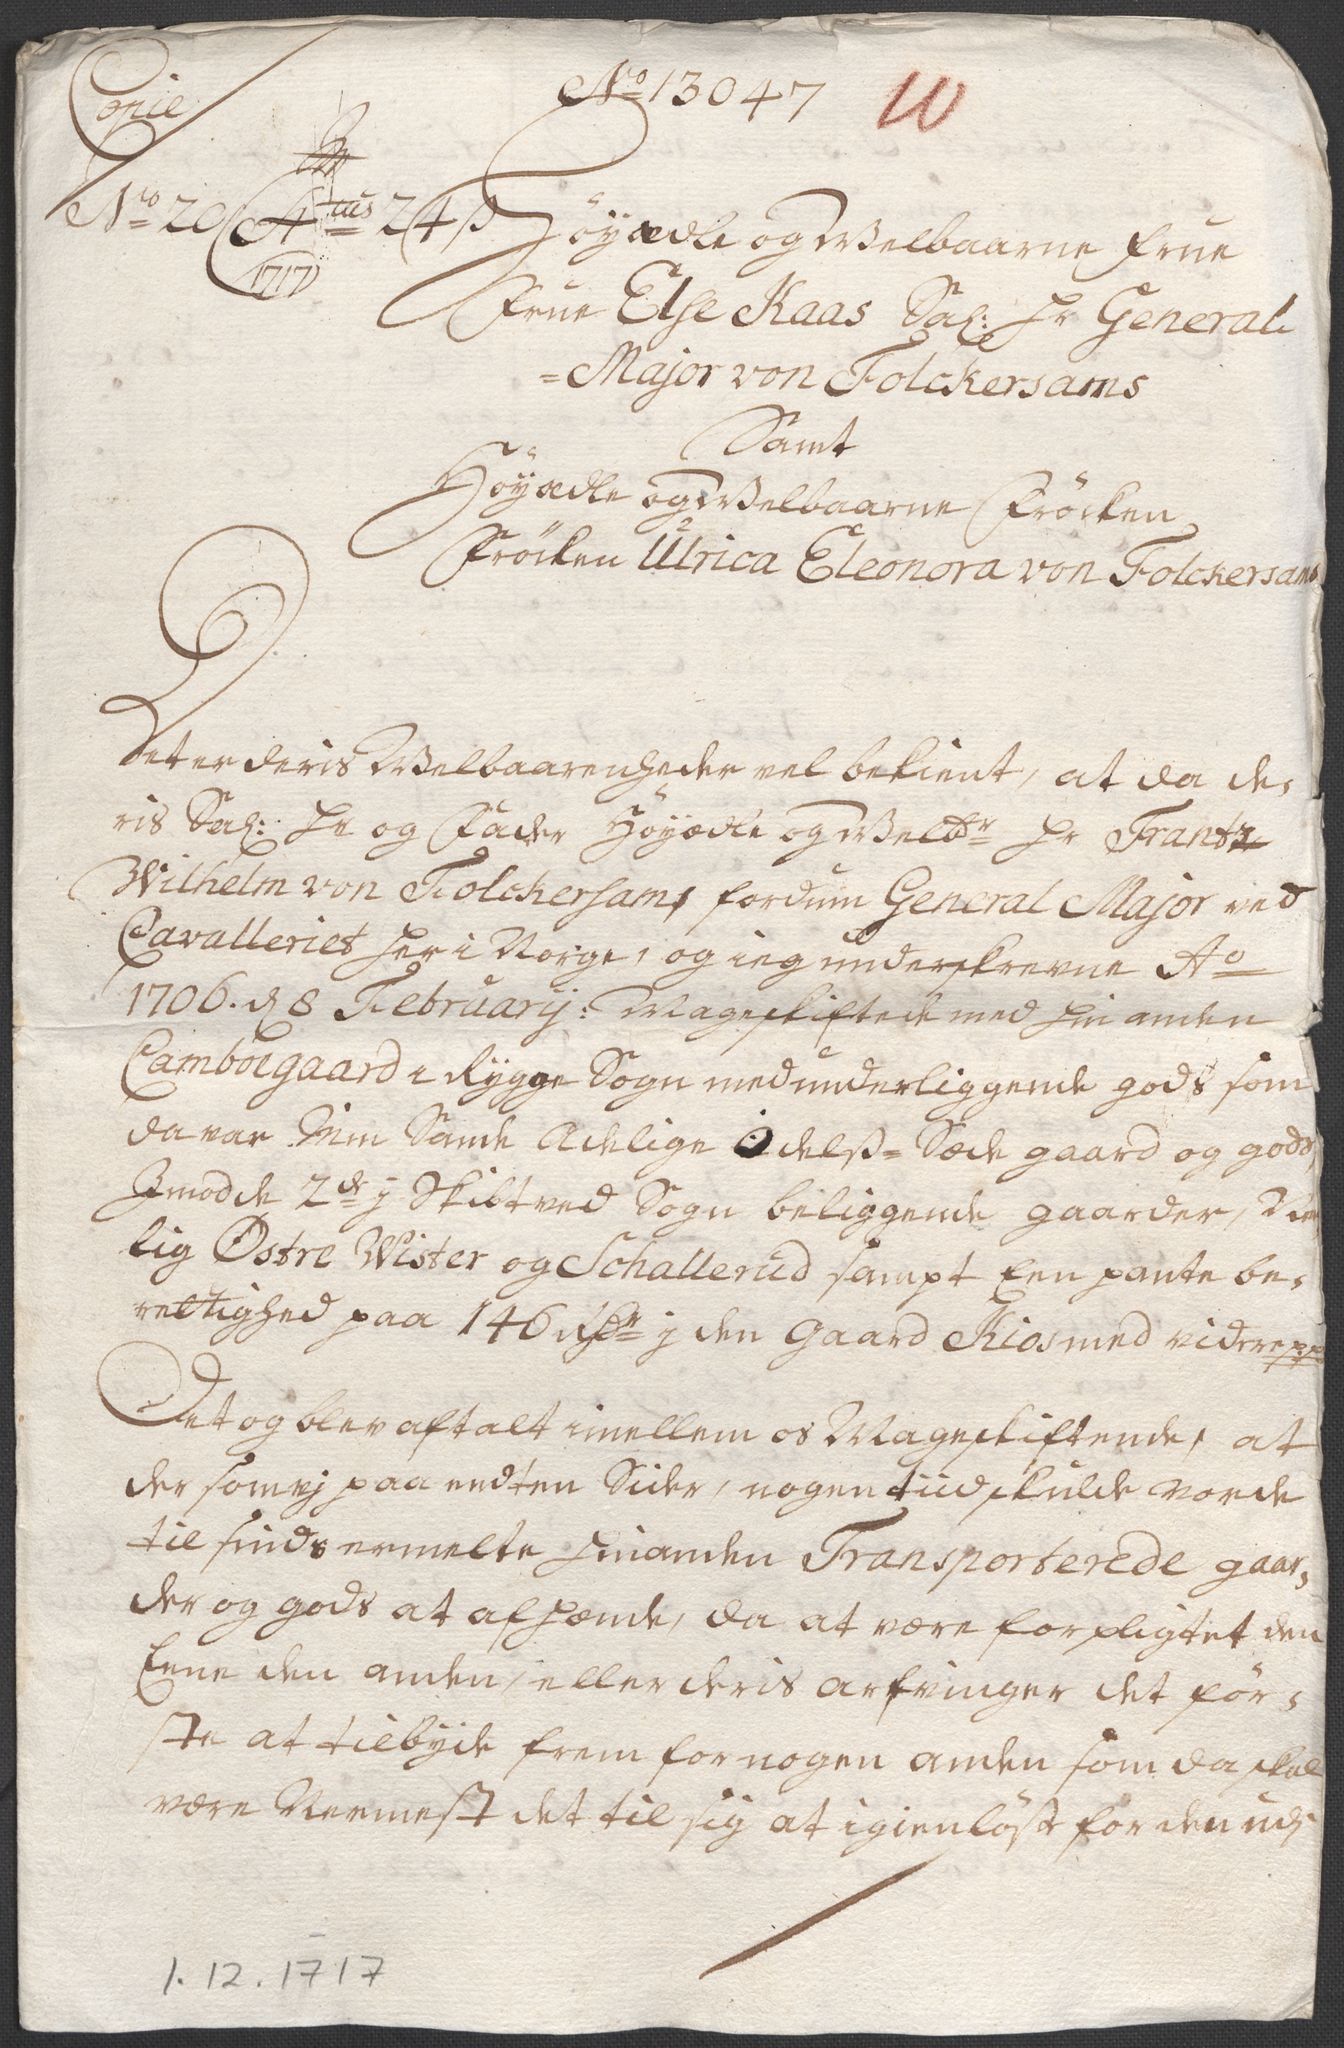 Copie
No 13047
10
No 20 4tius 24 s
1717
Höyædle og Welbaarne Frue
Frue Else Kaas Sal: Hr General
=Major von Folckersams
Samt
Höyædle og Welbaarne Fröcken
Fröcken Ulrica Eleonora von Folckersams
Det er deris Welbaarenheder vel bekient, at da de,
ris Sal: Hr og Fader Höyædle og Welbr Hr Frantz
Wilhelm von Folckersams, fordum General Major ved
Cavalleriet her i Norge, og ieg underskrevne Ao
1706. d 8 February: Mageskiftede med hin anden
Camboegaard i Rygge Sogn med underliggende gods som
da var min Sande Adelige Odelss= Sæde gaard og gods,
Imod de 2de j Skibtved Sogn beliggende gaarder, Nem
lig Østre Wister og Schallerud sampt Een pante be,
rettighed paa 146 Rdr j den Gaard Kios med videre pp
Det og blev aftalt imellem os Mageskiftende, at
der som vj paa endten Sider, nogen tiid skulde vorde
til sinds ermelte hinanden Transporterede gaar,
der og gods at afhænde, da at være forpligtet den
Eene den anden, eller deris arfvinger det för,
ste at tilbyde frem for nogen anden som da skal
være Nermest det til sig at igienlöse for den udj
1.12.1717